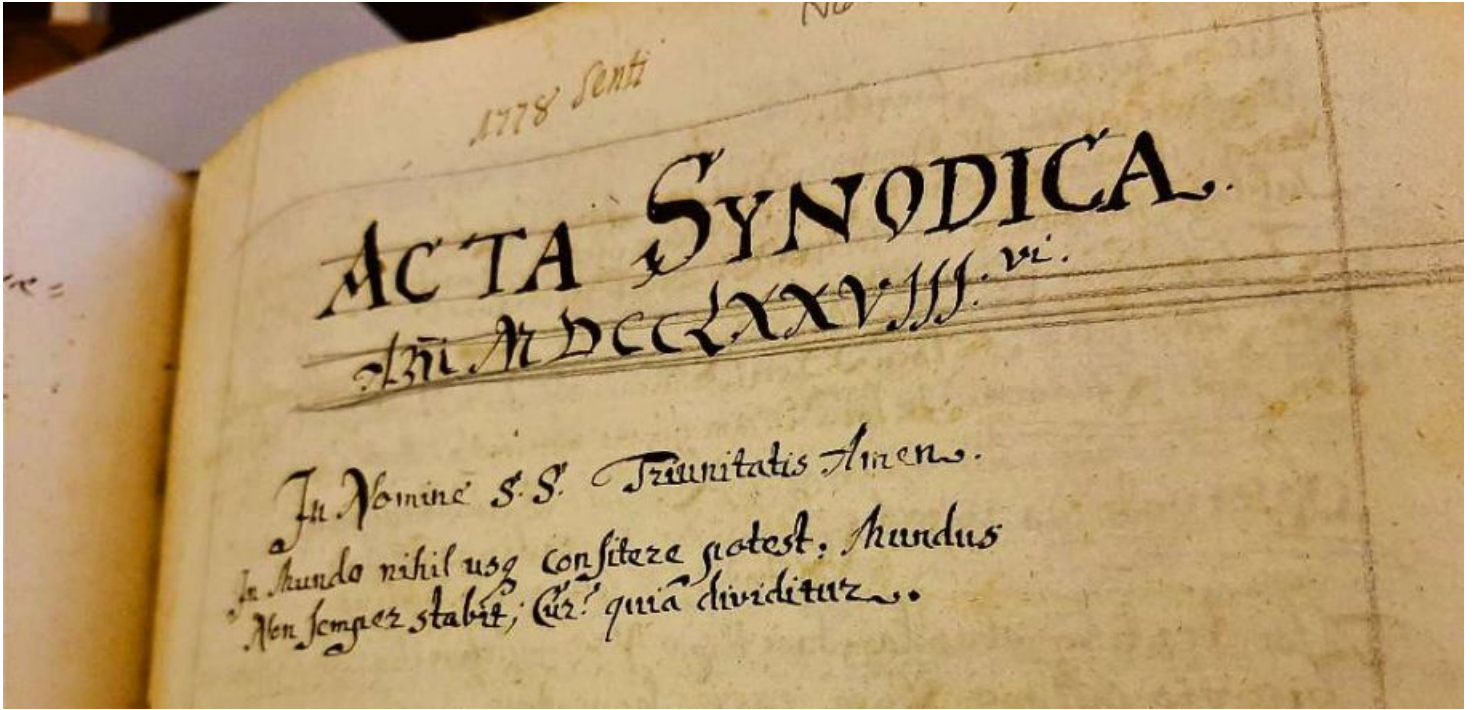 1778 Senti
ACTA SYNODICA.
Añi MDCCLXXVIII. vi.
In Nomine S. S. Triunitatis Amen.
In Mundo nihil usq consitere potest, Mundus
Non semper stabit; Cur? quia dividitur.